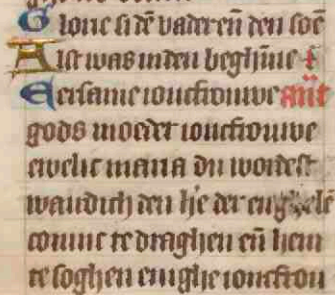 Glorie si dē vader eñ den soē
Alst was inden beghinne e
Eersame ioncfrouwe añt
gods moeder ioncfrouwe
ewelic maria du wordest
waerdich den h̄e der enghelē
coninc te draghen eñ hem
te soghen eenighe ioncfrou